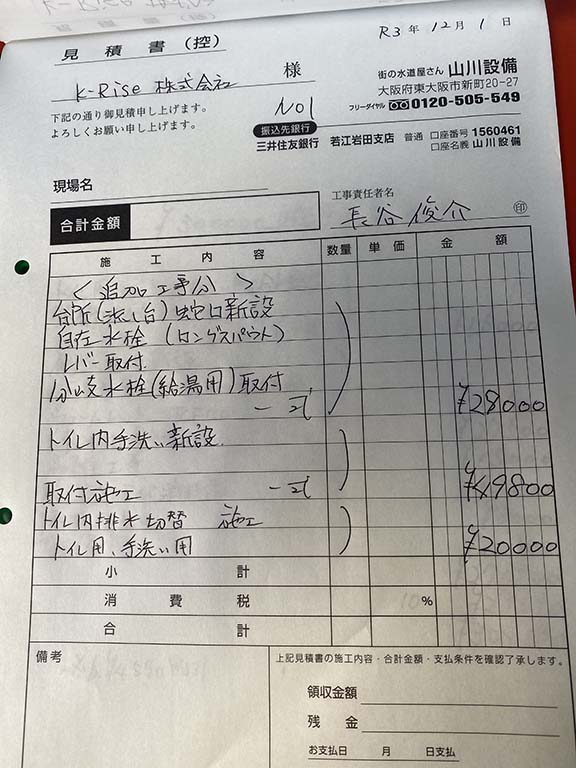 見積書(控)
R3年12月1日
K-Rise 株式会社 様
下記の通り御見積申し上げます。
よろしくお願い申し上げます。
No1
街の水道屋さん 山川設備
大阪府東大阪市新町20-27
フリーダイヤル 0120-505-549
振込先銀行
三井住友銀行 若江岩田支店 普通 口座番号 1560461
口座名義 山川設備
現場名
合計金額
工事責任者名
長谷俊介 印
施工内容 数量 単価 金額
〈追加工事分〉
台所(流し台)蛇口新設
自在水栓 (ロングスパウト)
レバー取付
分岐水栓(給湯用)取付
一式 ¥28000
トイレ内手洗い新設
取付施工 一式 ¥49800
トイレ内排水切替 施工
トイレ用、手洗い用 ¥20000
小計
消費税 10%
合計
備考
上記見積書の施工内容・合計金額・支払条件を確認了承します。
領収金額
残金
お支払日 月 日支払